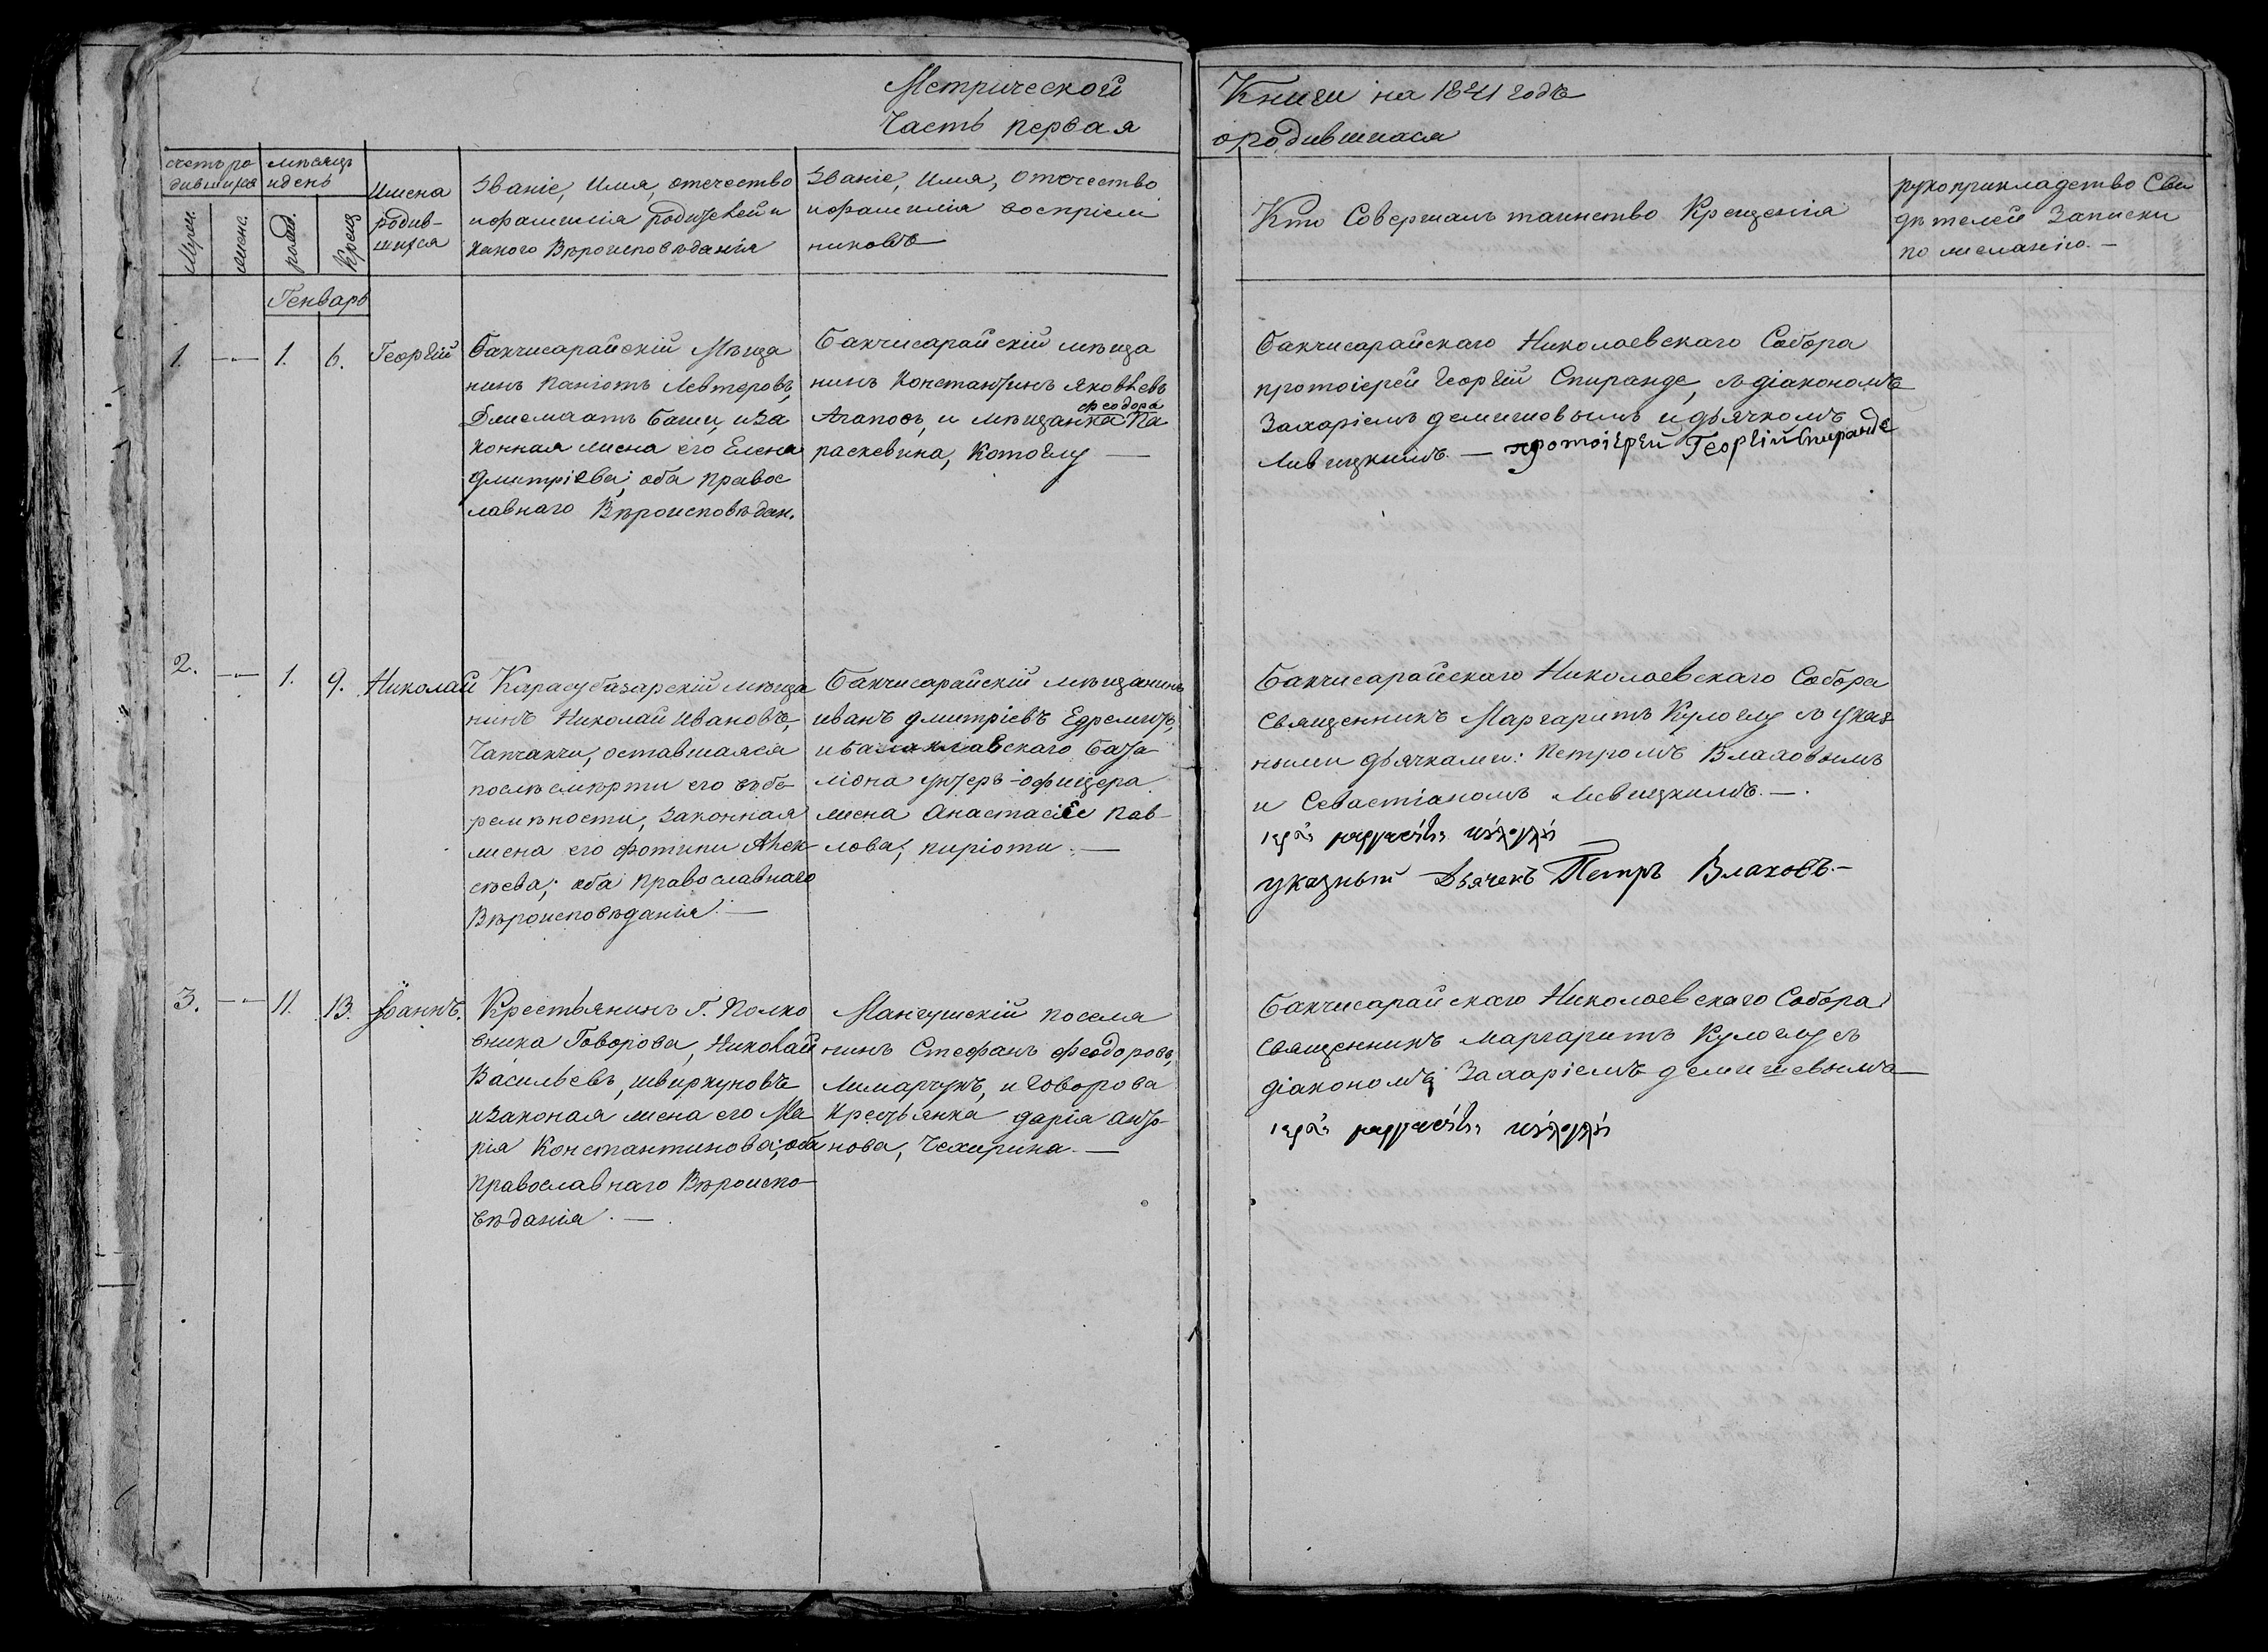 Метрической
Часть первая
Книги на 1841 годъ
ородившихся
счетъ ро
дившихся
мѣсяцъ
идень
Муж.
женс.
рожд.
Крещ
Имена
родив-
шихся
Званіе, Имя, отечество
ифамилія родителей и
какого Вѣроисповѣданія
Званіе, Имя, Отечество
ифамилія воспріем
никовъ
Кто Совершалъ таинство Крещенія
рукоприкладство Сви
дѣтелей Записки
по желанію. —
Генварь
1.
— —
1.
6.
Георгій
бакчисарайскій Мѣща
нинъ Панаiотъ Левтеровъ,
баши, иза
конная жена его Елена
дмитріева; оба правос
лавнаго Вѣроисповѣдан.
бакчисарайскій мѣща
нинъ Константинъ яковлевъ
Агаповъ, и мѣщанка феодора Па
раскевина, Котоглу —
бакчисарайскаго Николаевскаго Собора
протоіерей Георгій Спиранде, съ діакономъ
Захаріемъ демишевымъ и дьячкомъ
Левицкимъ. — протоіерей Георгій Спиранде
2.
— —
1.
9.
Николай
Карасубазарскій мѣща
нинъ Николай Ивановъ,
Чапчакчи, оставшаяся
послѣ смѣрти его въбе
ремѣности, законная
жена его фотини Алек
сѣева; оба православнаго
Вѣроисповѣданія. —
бакчисарайскій мѣщанинъ
иванъ дмитріевъ
ибалаклавскаго бата
ліона унтеръ-офицера
жена Анастасіе Пав
лова; киріоти. —
бакчисарайскаго Николаевскаго Собора
священникъ Маргаритъ Кулоглу съ указ
ными дьячками: Петромъ Влаховымъ
и Севастіаномъ Левицкимъ. — .
указный Дьячекъ Петръ Влаховъ. —
3.
— —
11.
13.
Іоаннъ.
Крестьянинъ Г. Полко
вника Говорова, Николай
Васильевъ, швиркуновъ
изаконая жена его Ма
рія Константинова; оба
православнаго Вѣроиспо
вѣданія. —
Мангушскій поселя
нинъ Стефанъ феодоровъ,
Лимарчукъ, и Говорова
Крестьянка дарія анто
нова, Чехирина. —
бакчисарайскаго Николаевскаго Собора
священникъ маргаритъ Кулоглу съ
діакономъ Захаріемъ демишевымъ —